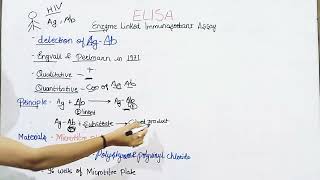 HIV
Ag, Ab
ELISA
Enzyme Linked Immunosorbant Assay
- detection of Ag-Ab
- Engvall & Perlmann in 1971
- Qualitative - +
- Quantitative - Con of Ag Ab
Principle - Ag + Ab → Ag-Ab
Ag-Ab + Substrate → product
Materials - Microtitre
Polystyrene, Polyvinyl Chloride
- 96 wells of Microtitre Plate